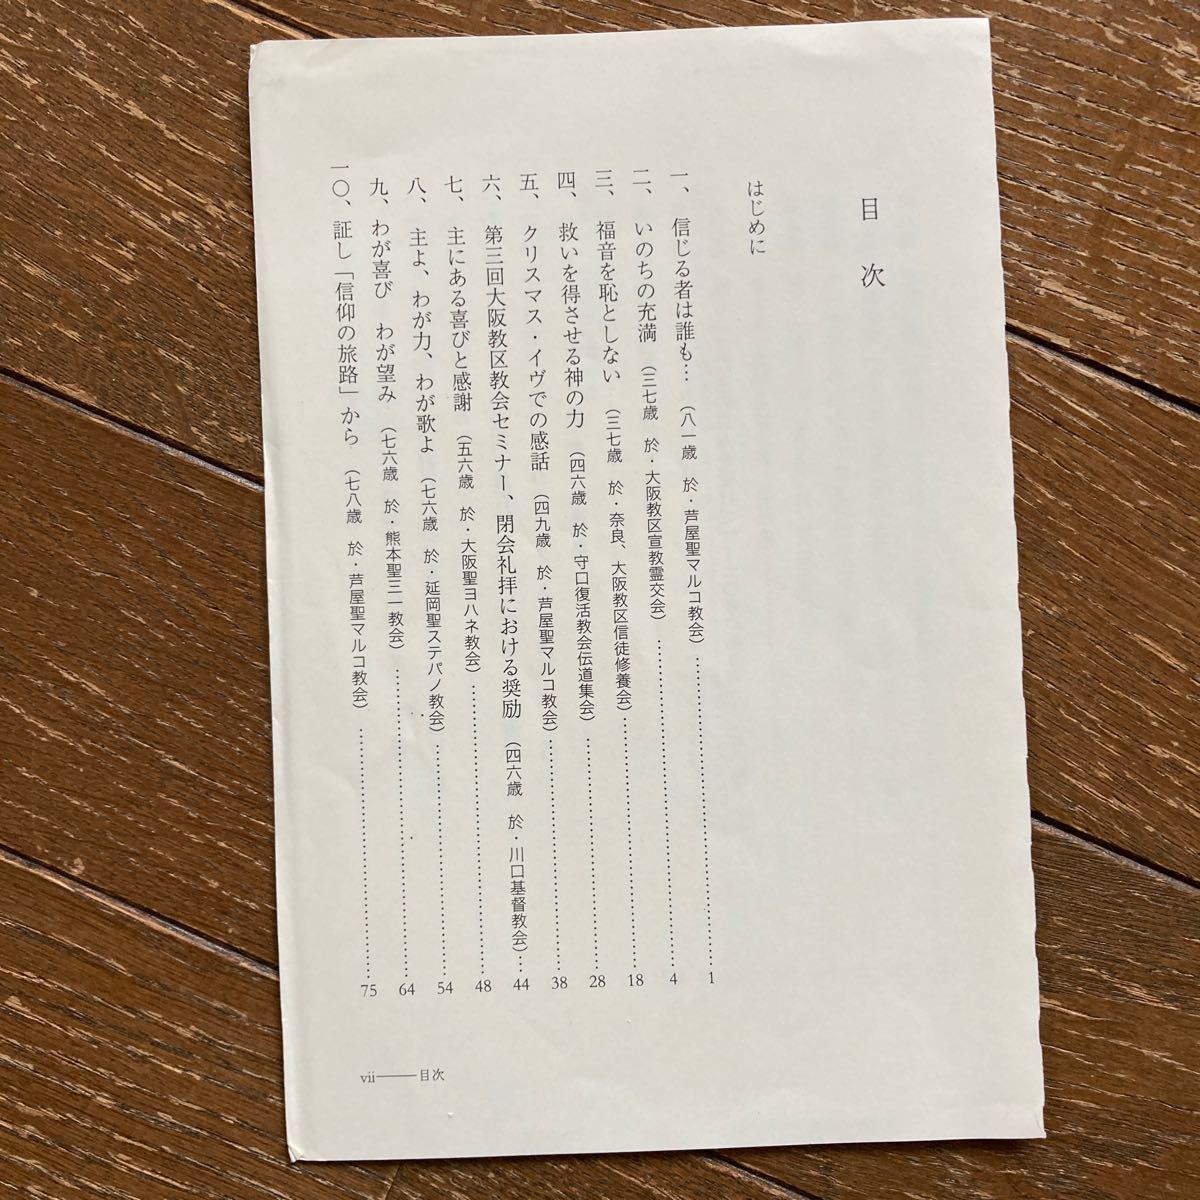 目次
はじめに
一、信じる者は誰も…（八一歳 於・芦屋聖マルコ教会）……1
二、いのちの充満（三七歳 於・大阪教区宣教霊交会）……4
三、福音を恥としない（三七歳 於・奈良、大阪教区信徒修養会）……18
四、救いを得させる神の力（四六歳 於・守口復活教会伝道集会）……28
五、クリスマス・イヴでの感話（四九歳 於・芦屋聖マルコ教会）……38
六、第三回大阪教区教会セミナー、閉会礼拝における奨励（四六歳 於・川口基督教会）…44
七、主にある喜びと感謝（五六歳 於・大阪聖ヨハネ教会）……48
八、主よ、わが力、わが歌よ（七六歳 於・延岡聖ステパノ教会）……54
九、わが喜び わが望み（七六歳 於・熊本聖三一教会）……64
一〇、証し「信仰の旅路」から（七八歳 於・芦屋聖マルコ教会）……75
vii——目次